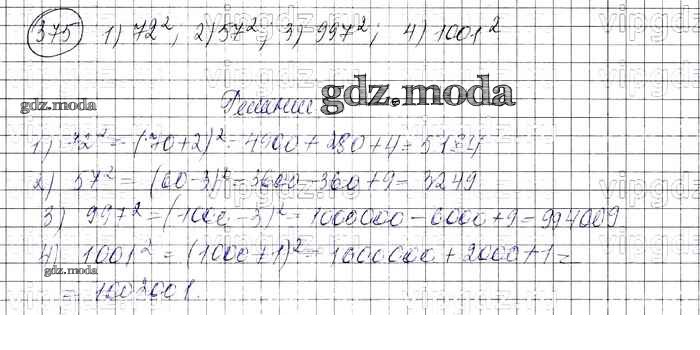 375 1) 72², 2) 57², 3) 997²; 4) 1001²
gdz.moda
Решение gdz.moda
1) 72² = (70+2)² = 4900 + 280 + 4 = 5184
2) 57² = (60-3)² = 3600 - 360 + 9 = 3249
3) 997² = (1000 - 3)² = 1000000 - 6000 + 9 = 994009
4) 1001² = (1000 + 1)² = 1000000 + 2000 + 1 =
gdz.moda
= 1002001.